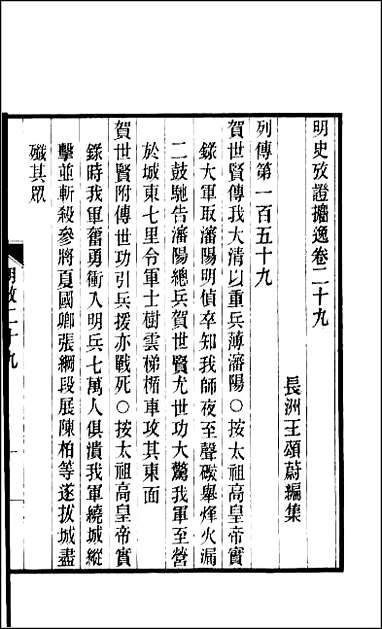 明史攷證攟逸卷二十九
長洲王頌蔚編集
列傳第一百五十九
賀世賢傳我大清以重兵薄瀋陽○按太祖高皇帝實
錄大軍取瀋陽明偵卒知我師夜至聲礟舉烽火漏
二鼓馳告瀋陽總兵賀世賢尤世功大驚我軍至營
於城東七里令軍士樹雲梯楯車攻其東面
賀世賢附傳世功引兵援亦戰死○按太祖高皇帝實
錄時我軍奮勇衝入明兵七萬人俱潰我軍繞城縱
擊並斬殺參將夏國卿張綱段展陳柏等遂拔城盡
殲其眾
明攷二十九
一